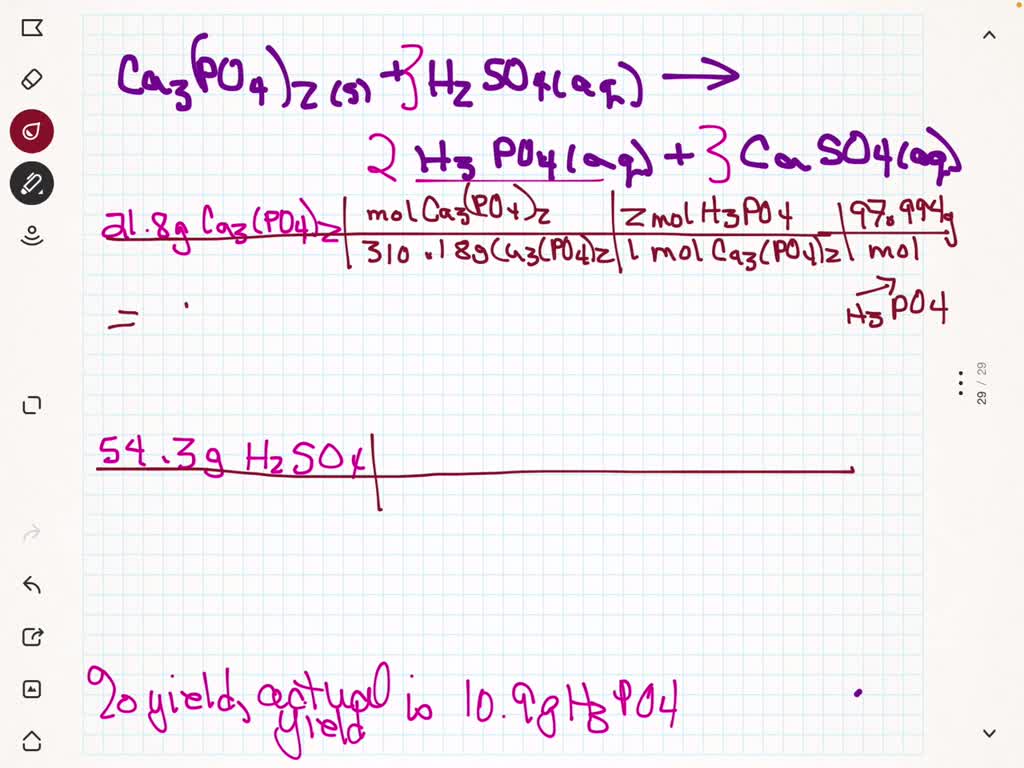 Ca3(PO4)2(s) + 3H2SO4(aq) →
2 H3PO4(aq) + 3 CaSO4(aq)
21.8g Ca3(PO4)2 | mol Ca3(PO4)2 | 2 mol H3PO4 | 97.994g
310.18g Ca3(PO4)2 | 1 mol Ca3(PO4)2 | mol
= H3PO4
29 / 29
54.3g H2SO4
% yield, actual is 10.9g H3PO4
yield